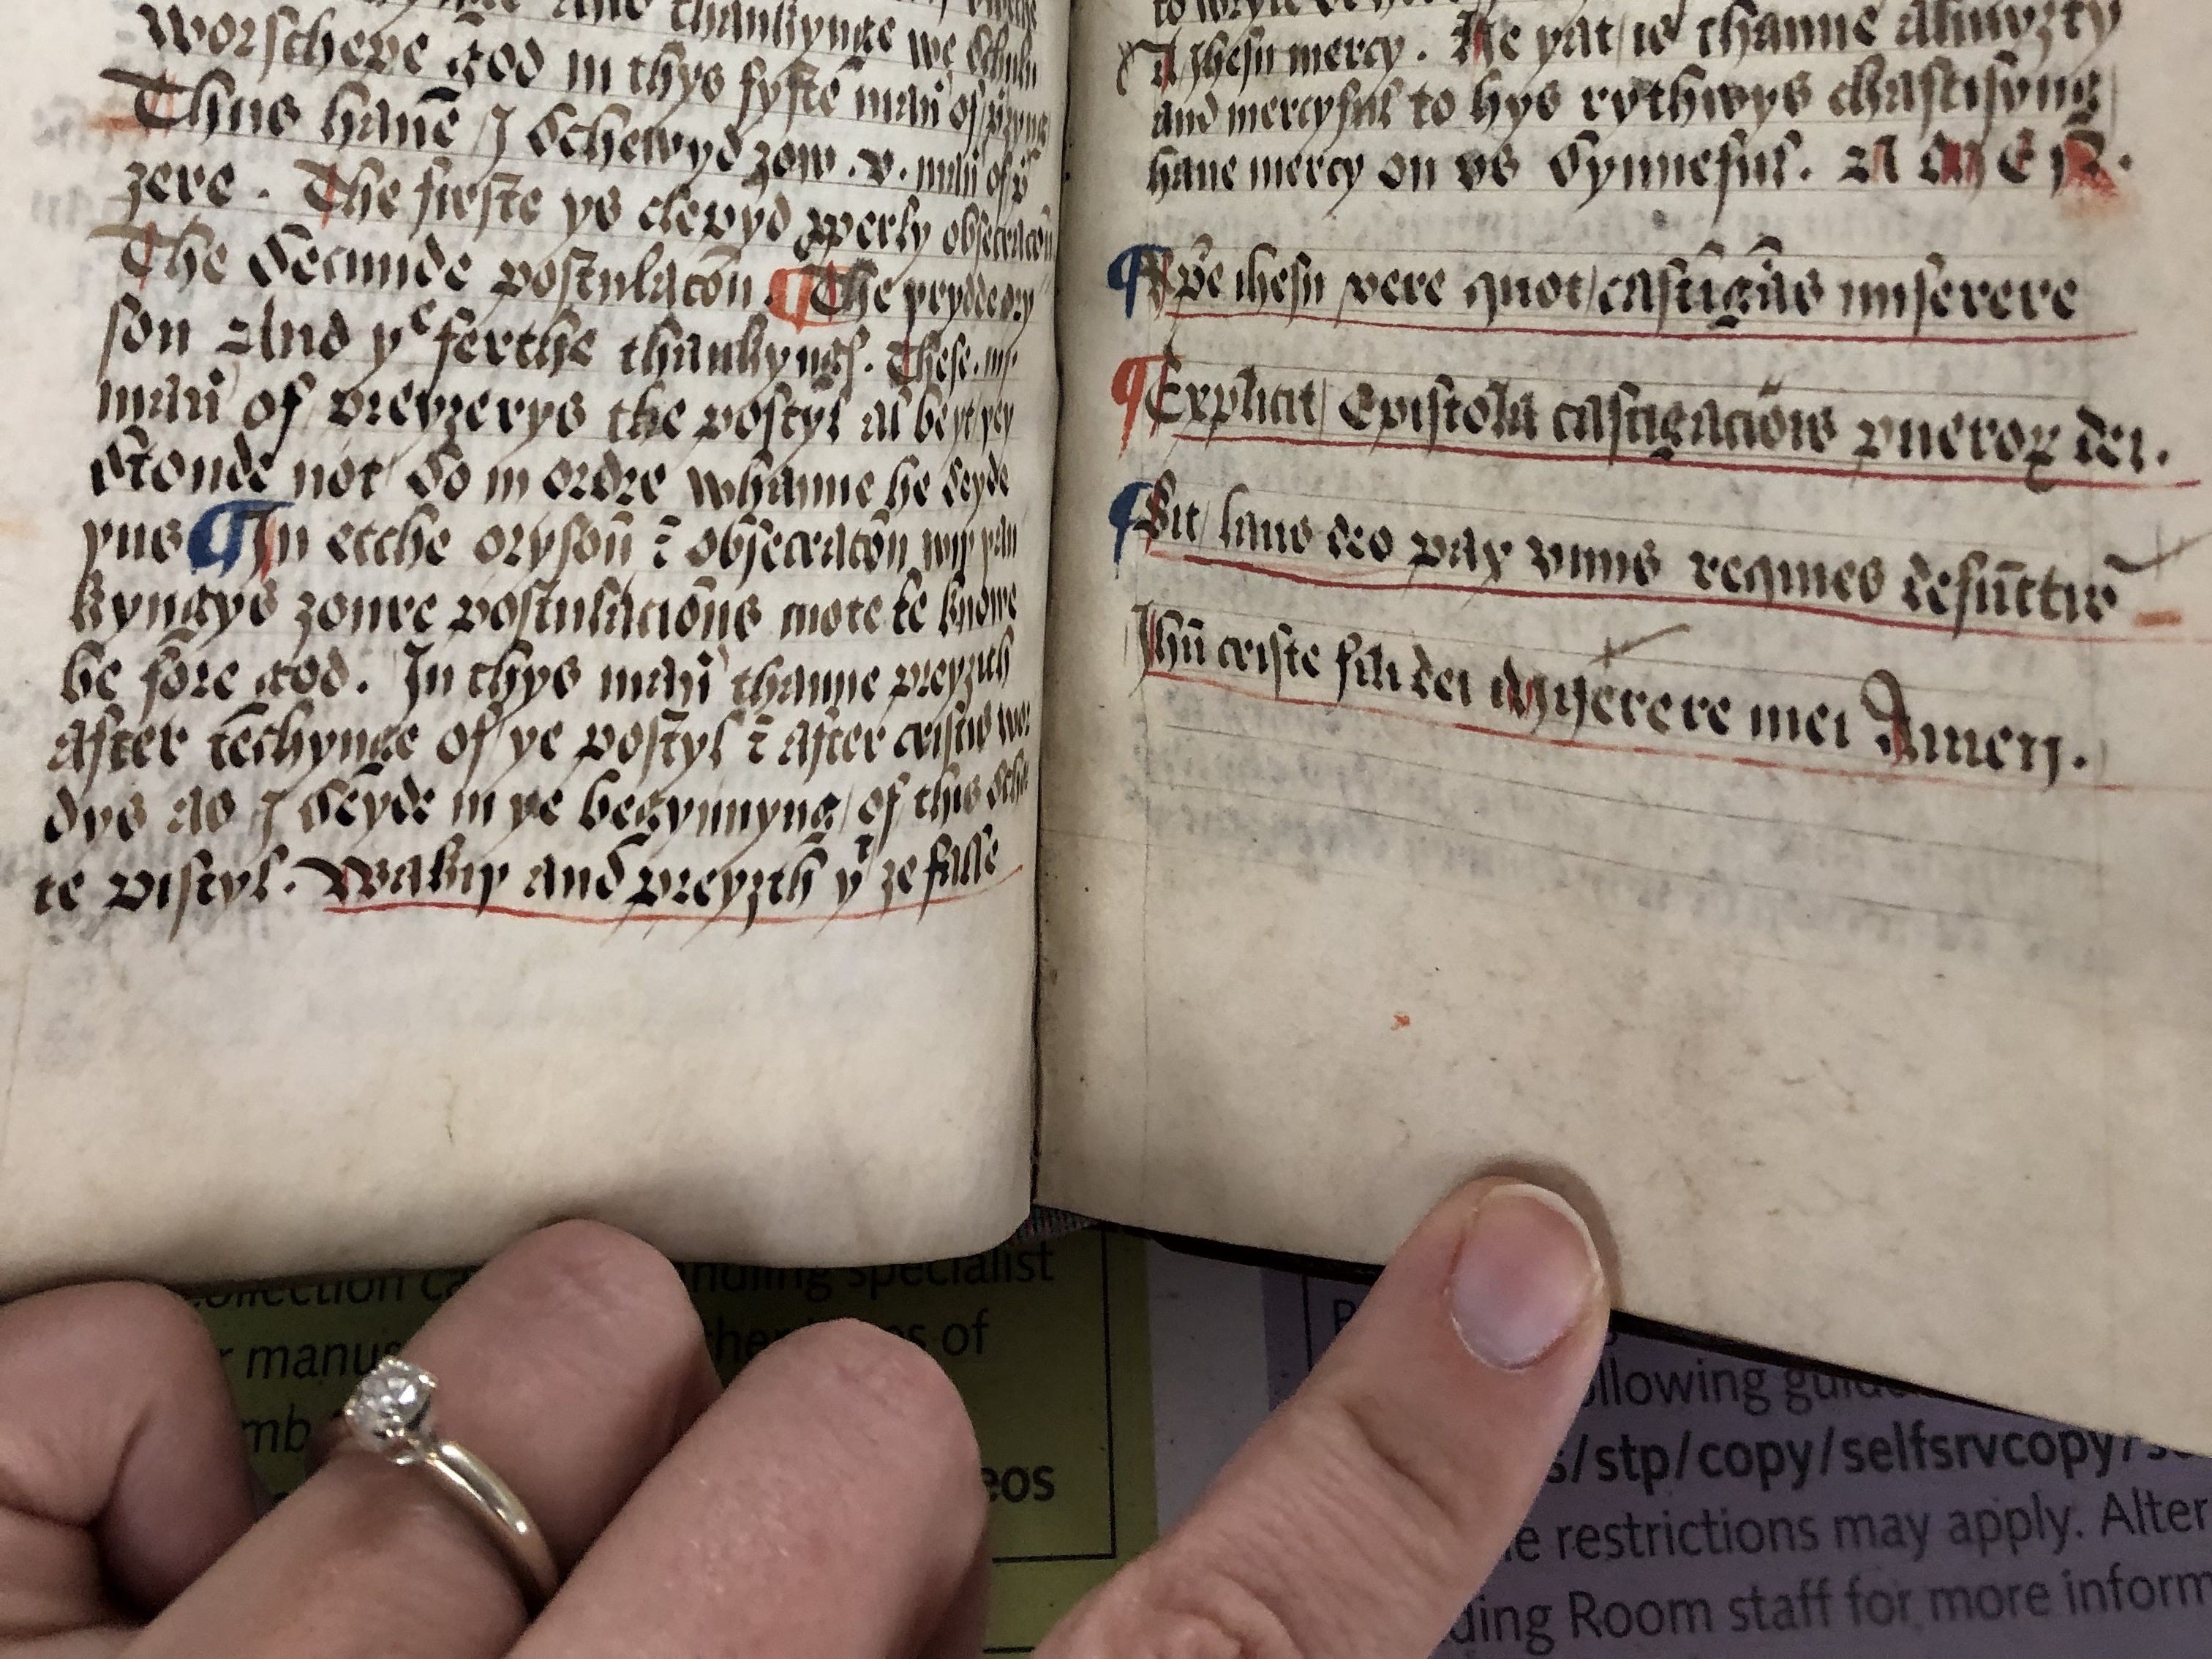 thankynge we schuln
worschepe god in thys fyfte man̄ of
Thus haue I schewyd ȝow .v. man̄ of
ȝere . The firste ys clepyd pperly obsecracōn
The secunde postulacōn . ¶ The þrydde ory
son And þe ferthe thankyngꝭ . These .iiij.
man̄ of preyȝerys the postyl al be yt þey
stonde not so in ordre whanne he seyde
þus ¶ In etche orysoun̄ ⁊ obsecracōn wyþ þan
kyngys ȝoure postulaciōnus mote be knowe
be fore god . In thys man̄ thanne preyȝith
after techynge of þe postyl ⁊ after cristis wor
dys as I seyde in þe begynnyng of this
te pistyl . Wakiþ and preyȝth þt ȝe falle
Ihesu mercy . He þat is thanne almyȝty
and mercyful to hys rythwys chastisyng
haue mercy on vs synneful . A M E N .
¶ xp̄e ihesu vere quos castigās miserere
¶ Explicit Epistola castigaciōis pueroꝝ dei .
¶ Sit laus deo pax viuis requies defūctis
Ihū criste fili dei myserere mei Amen .
collection
handling specialist
manus
of
eos
following
s/stp/copy/selfsrvcopy/
restrictions may apply. Alter
ding Room staff for more inform